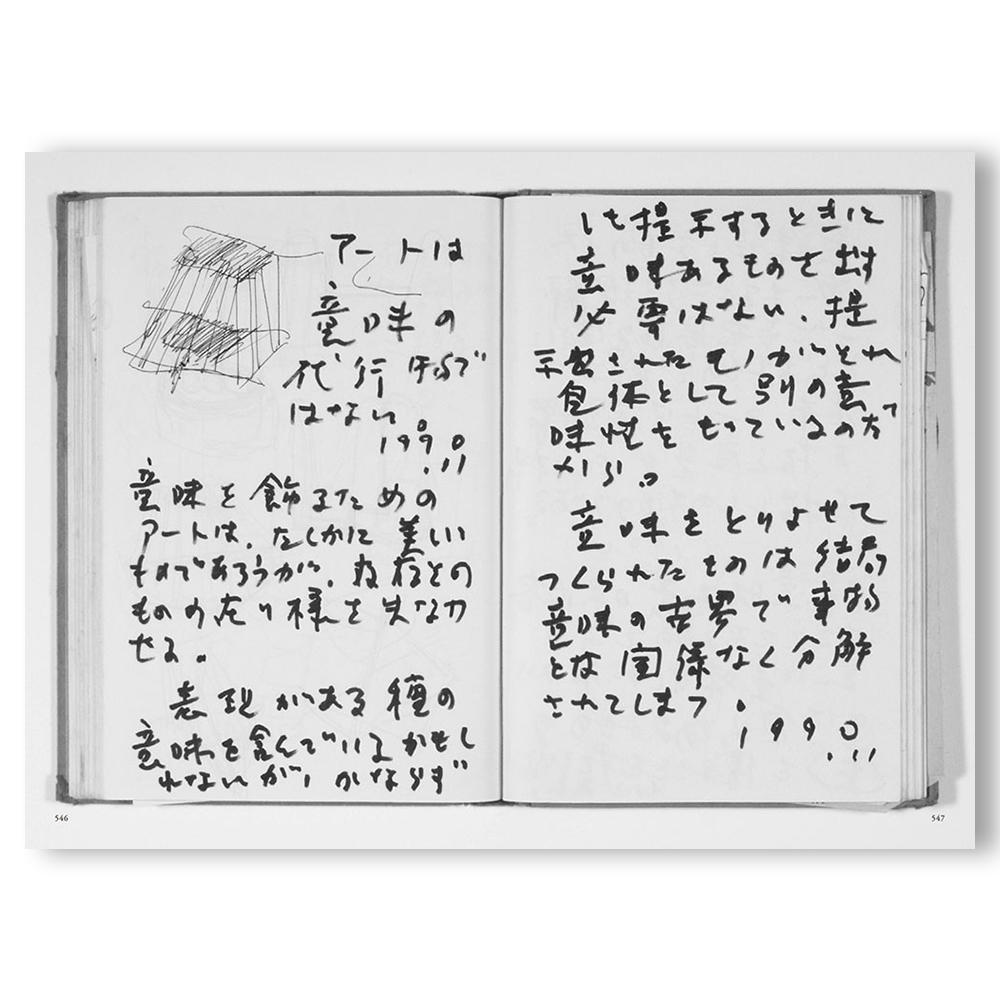 アートは
意味の
代行形で
はない
1990
.11
意味を飾るための
アートは、たしかに美しい
ものであろうが、存在との
ものの在り様を失なわ
せる。
表現がある種の
意味を含んでいるかもし
れないが、かならず
しも提示するときに
意味あるものを出す
必要はない、提
示されたモノがそれ
自体として別の意
味性をもっているのだ
から。
意味をとりよせて
つくられたものは結局
意味の世界で事物
とな関係なく分解
されてしまう。
1990
.11
546
547